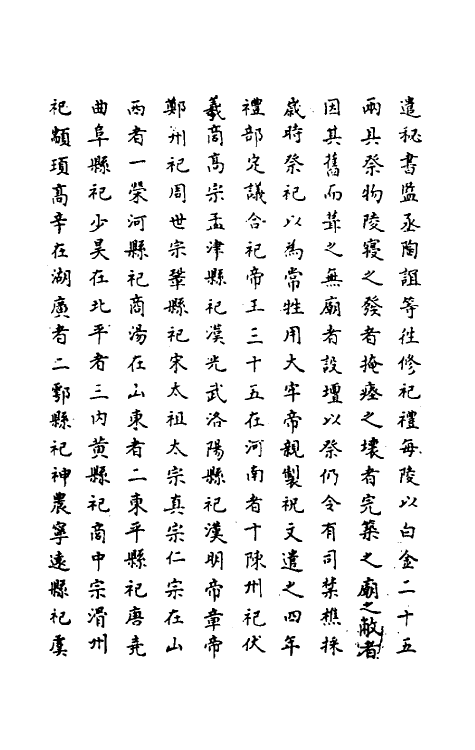 遣秘書監丞陶誼等徃修祀禮每陵以白金二十五
兩具祭物陵寢之發者掩瘞之壞者完築之廟之敝者
因其舊而葺之無廟者設壇以祭仍令有司禁樵採
嵗時祭祀以為常牲用大牢帝親製祝文遣之四年
禮部定議合祀帝王三十五在河南者十陳州祀伏
羲商高宗孟津縣祀漢光武洛陽縣祀漢明帝章帝
鄭州祀周世宗鞏縣祀宋太祖太宗真宗仁宗在山
西者一滎河縣祀商湯在山東者二東平縣祀唐堯
曲阜縣祀少昊在北平者三内黄縣祀商中宗滑州
祀顓頊高辛在湖廣者二酃縣祀神農寧遠縣祀虞